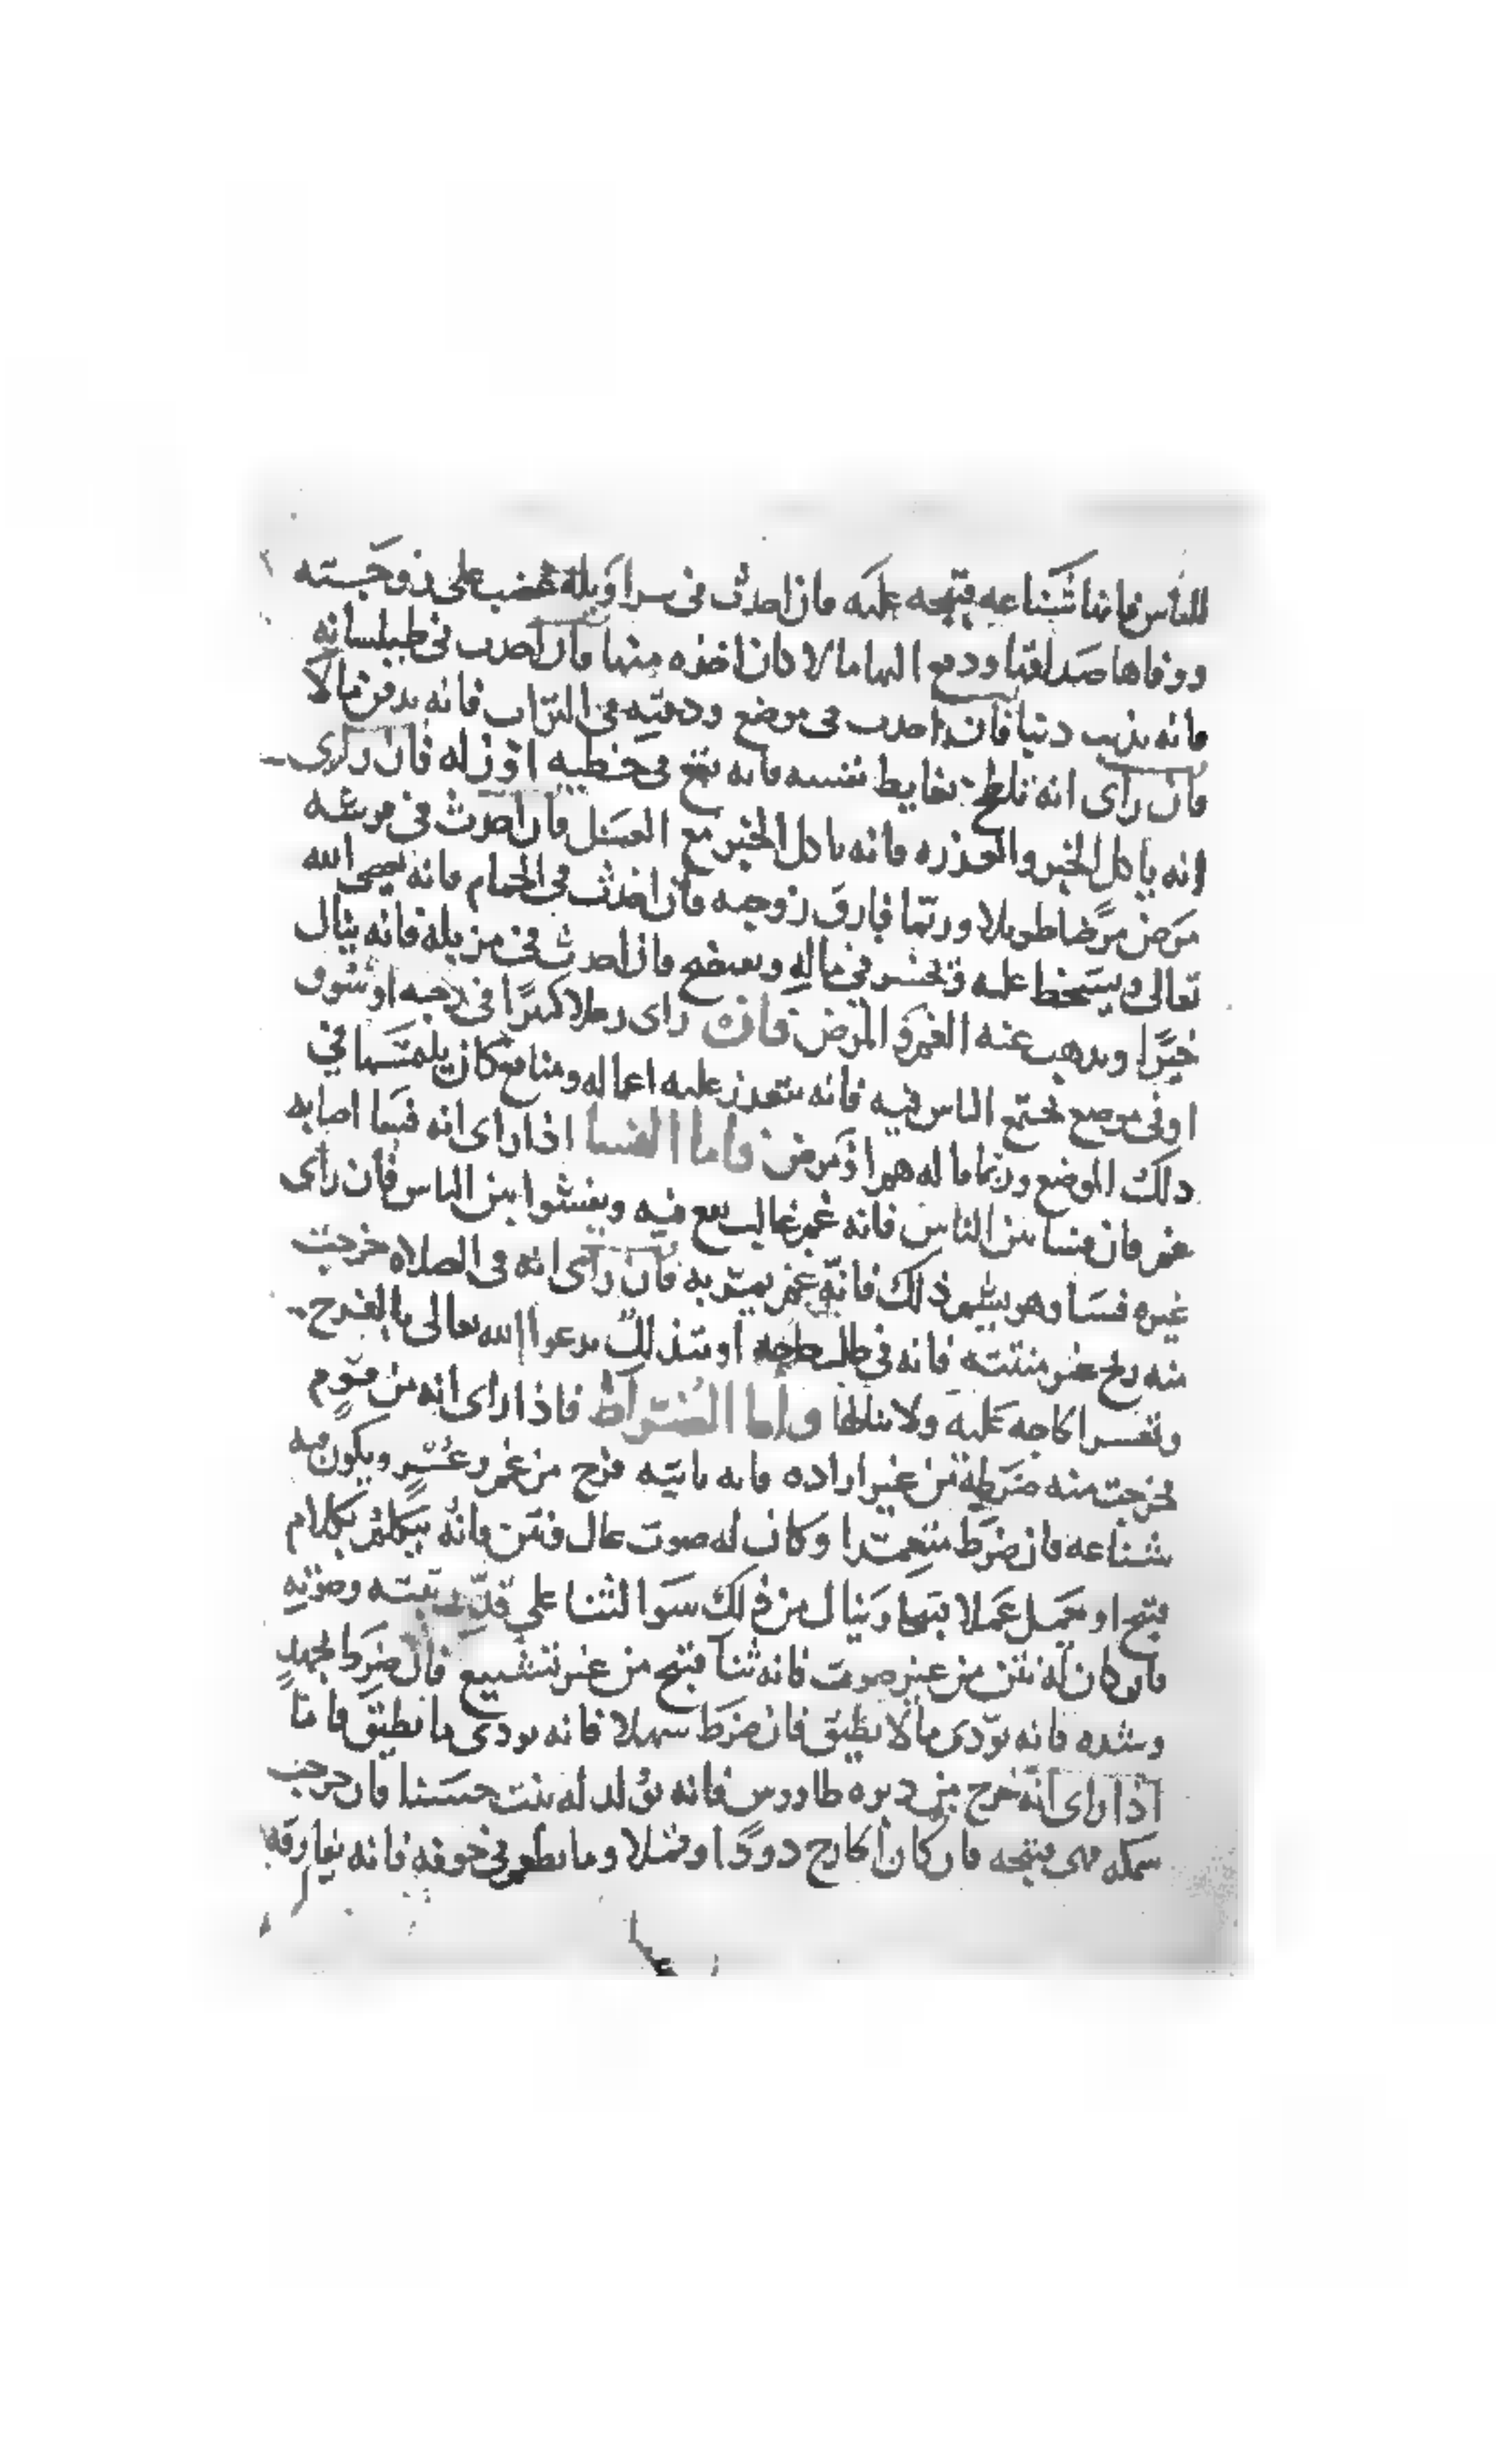 للناس فانها شناعه قبيحه عليه فان احدث في سراويله غضب على زوجته
ووفاها صداقها ودفع اليها مالا كان اخذه منها فان احدث في طيلسانه
فانه يذهب دنيا فان احدث في موضع ودفنه في التراب فانه يدفن مالا
فان رأى انه تلطخ بغايط نفسه فانه يقع في خطيه او زله فان رأى
انه ياكل الخبز والعذره فانه ياكل الخبز مع العسل فان احدث في فرشه
مرض مرضا طويلا وربما فارق زوجه فان احدث في الحمام فانه يعصي الله
تعالى ويسخط عليه ويخسر في ماله ويفتضح فان احدث في مزبله فانه ينال
خيرًا ويذهب عنه الغم والمرض فان راى رجلا كبيرًا في رحبه او سوق
او في موضع يجتمع الناس فيه فانه يتعذر عليه اعماله ومنافع كان يلتمسها في
ذلك الموضع وربما ماله هم او مرض فاما الفسا اذا راى انه فسا اصابه
غم فان فسا بين الناس فانه غم غالب يقع فيه ويفشوا بين الناس فان رأى
غيره فسا وهو يشم ذلك فانه غم يمر به فان رأى انه في الصلاه خرجت
منه ريح غير منتنه فانه في طلب حاجه او يتذلل يدعوا الله تعالى بالفرج
وتعسر الحاجه عليه ولا ينالها واما الضراط فاذا راى انه من قوم
خرجت منه ضرطه من غير اراده فانه ياتيه فرح من غم وعسر ويكون فيه
شناعه فان ضرط متعمدا وكان له صوت عال ونتن فانه يتكلم بكلام
قبيح او يعمل عملا قبيحا وينال من ذلك سوا الثنا على قدر نتنه وصوته
فان كان له نتن من غير صوت فانه ثنا قبيح من غير تشنيع فان ضرط بجهد
وشده فانه يودى مالا يطيق فان ضرط سهلا فانه يودى ما يطيق فاما
اذا راى انه خرج من دبره طاووس فانه يولد له بنت حسنا فان خرجت
سمكه فهى قبيحه فان كان الخارج دودًا او قملا وما يطوى في جوفه فانه يفارقه